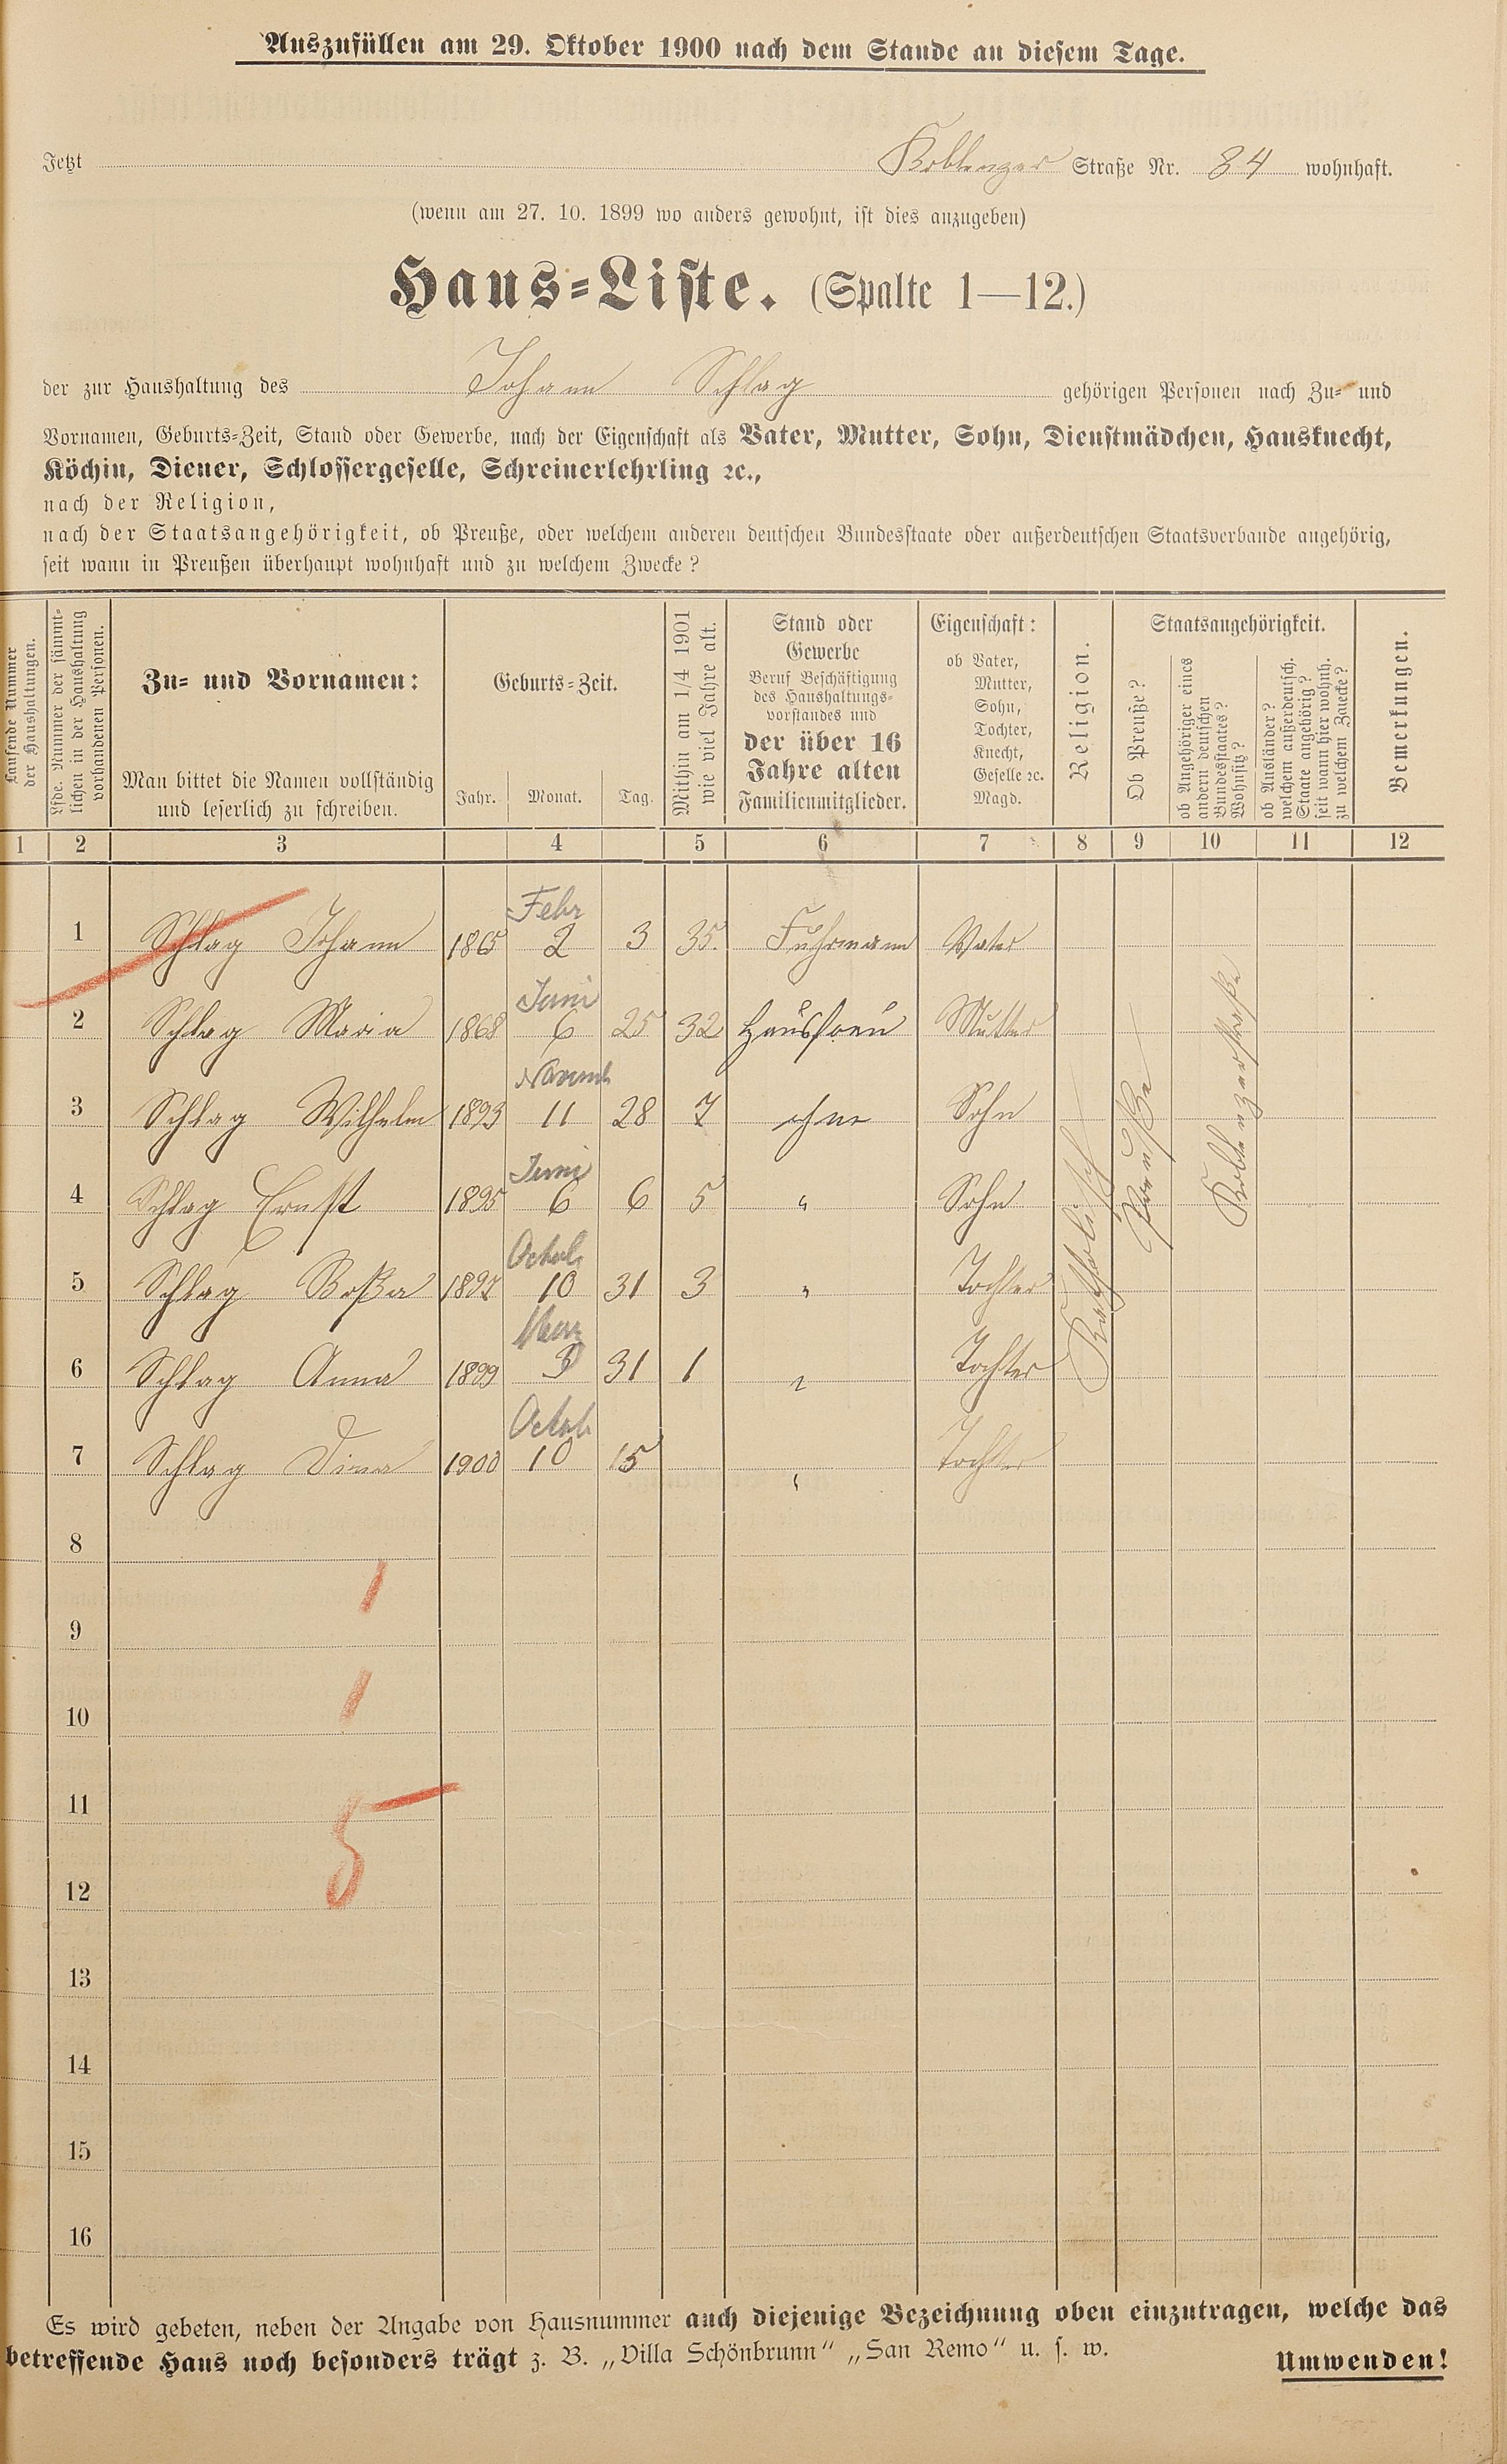 Auszufüllen am 29. Oktober 1900 nach dem Stande an diesem Tage.
Jetzt Koblenzer Straße Nr. 84 wohnhaft.
(wenn am 27. 10. 1899 wo anders gewohnt, ist dies anzugeben)
Haus=Liste. (Spalte 1—12.)
der zur Haushaltung des Johann Schlag gehörigen Personen nach Zu= und
Vornamen, Geburts=Zeit, Stand oder Gewerbe, nach der Eigenschaft als Vater, Mutter, Sohn, Dienstmädchen, Hausknecht,
Köchin, Diener, Schlossergeselle, Schreinerlehrling ꝛc.,
nach der Religion,
nach der Staatsangehörigkeit, ob Preuße, oder welchem anderen deutschen Bundesstaate oder außerdeutschen Staatsverbande angehörig,
seit wann in Preußen überhaupt wohnhaft und zu welchem Zwecke?
Laufende Nummer
der Haushaltungen.
Lfde. Nummer der sämmt-
lichen in der Haushaltung
vorhandenen Personen.
Zu= und Vornamen:
Man bittet die Namen vollständig
und leserlich zu schreiben.
Geburts=Zeit.
Jahr. Monat. Tag.
Mithin am 1/4 1901
wie viel Jahre alt.
Stand oder
Gewerbe
Beruf Beschäftigung
des Haushaltungs-
vorstandes und
der über 16
Jahre alten
Familienmitglieder.
Eigenschaft:
ob Vater,
Mutter,
Sohn,
Tochter,
Knecht,
Geselle ꝛc.
Magd.
Religion.
Staatsangehörigkeit.
Ob Preuße?
ob Angehöriger eines
andern deutschen
Bundesstaates?
Wohnsitz?
ob Ausländer?
welchem außerdeutsch.
Staate angehörig?
seit wann hier wohnh.
zu welchem Zwecke?
Bemerkungen.
1 2 3 4 5 6 7 8 9 10 11 12
Febr
1 Schlag Johann 1865 2 3 35. Fuhrmann Vater
Juni
2 Schlag Maria 1868 6 25 32 Hausfrau Mutter
Novemb
3 Schlag Wilhelm 1893 11 28 7 ohne Sohn
Juni
4 Schlag Ernst 1895 6 6 5 " Sohn
Octob
5 Schlag Roßa 1897 10 31 3 " Tochter
März
6 Schlag Anna 1899 3 31 1 " Tochter
Octob
7 Schlag Dina 1900 10 15 " Tochter
Katholisch
Preuße
Koblenzerstraße
8
9
10
11
12
13
14
15
16
1
1
5
Es wird gebeten, neben der Angabe von Hausnummer auch diejenige Bezeichnung oben einzutragen, welche das
betreffende Haus noch besonders trägt z. B. „Villa Schönbrunn" „San Remo" u. s. w.
Umwenden!